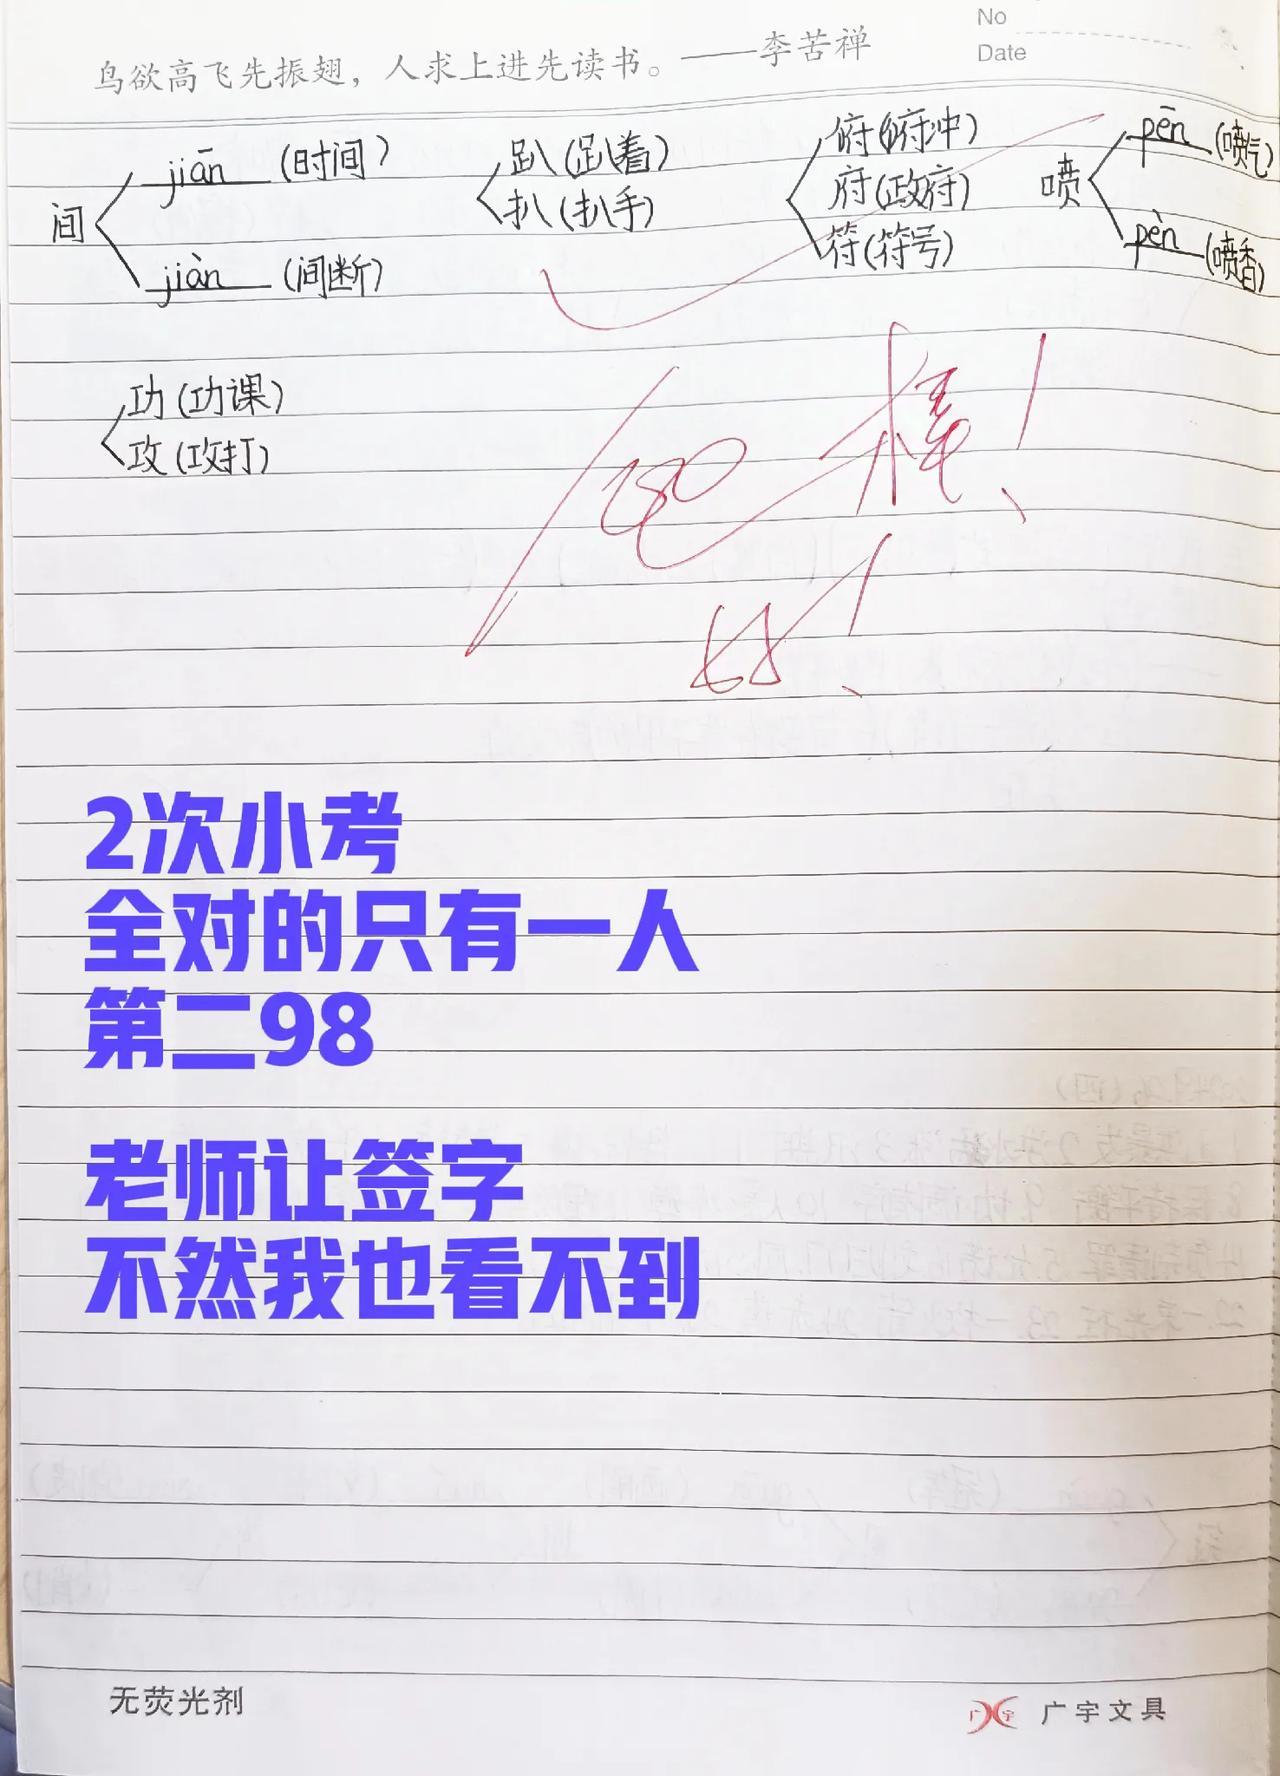 No
Date
鸟欲高飞先振翅，人求上进先读书。——李苦禅
间 jiān (时间) 趴 (趴着) 俯 (俯冲) 喷 pēn (喷气)
扒 (扒手) 府 (政府)
jiàn (间断) 符 (符号) pèn (喷香)
功 (功课)
攻 (攻打)
100 棒！
2次小考
全对的只有一人
第二98
老师让签字
不然我也看不到
无荧光剂
广宇文具